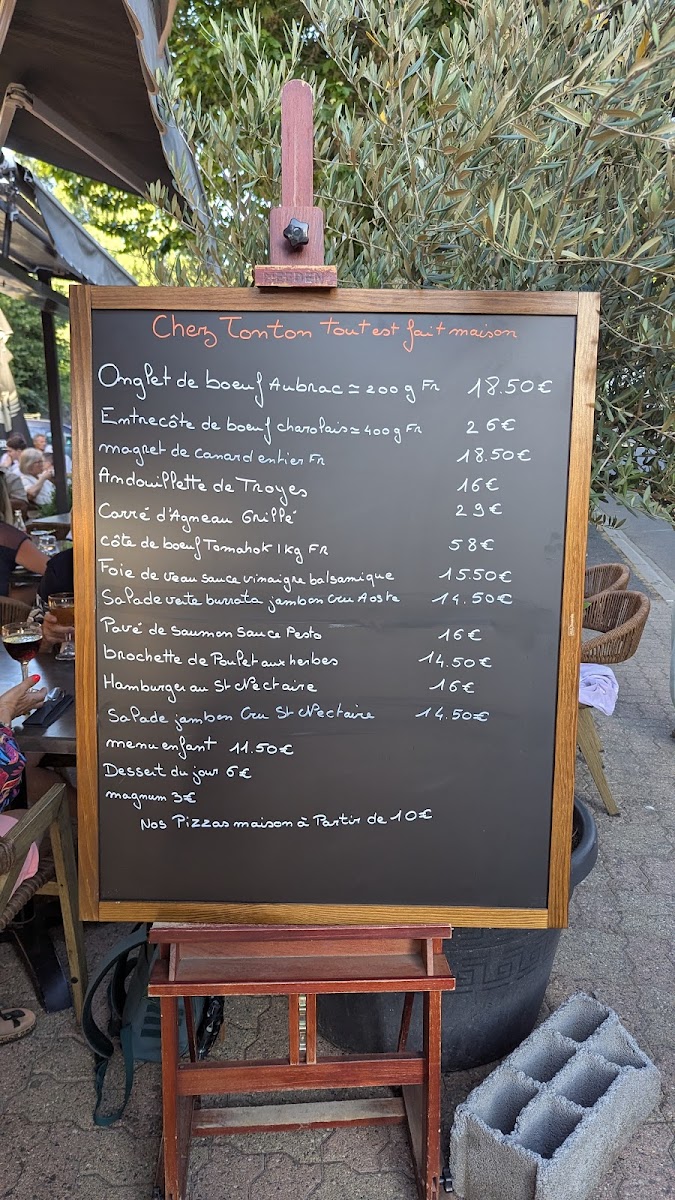 MEEDEN
Chez Tonton tout est fait maison
Onglet de boeuf Aubrac ≃ 200 g Fr 18.50€
Entrecôte de boeuf charolais ≃ 400 g Fr 26€
magret de canard entier Fr 18.50€
Andouillette de Troyes 16€
Carré d'Agneau Grillé 29€
côte de boeuf Tomahok 1 kg Fr 58€
Foie de veau sauce vinaigre balsamique 15.50€
Salade verte burrata jambon cru Aoste 14.50€
Pavé de saumon sauce Pesto 16€
brochette de Poulet aux herbes 14.50€
Hamburger au St Nectaire 16€
Salade jambon cru St Nectaire 14.50€
menu enfant 11.50€
Dessert du jour 6€
magnum 3€
Nos Pizzas maison à Partir de 10€